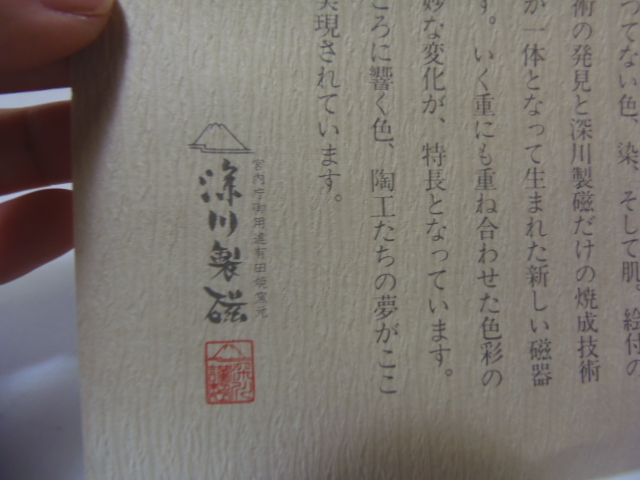 つてない色、染、そして肌。絵付の
術の発見と深川製磁だけの焼成技術
が一体となって生まれた新しい磁器
す。いく重にも重ね合わせた色彩の
妙な変化が、特長となっています。
ころに響く色、陶工たちの夢がここ
実現されています。
宮内庁御用達有田焼窯元
深川製磁